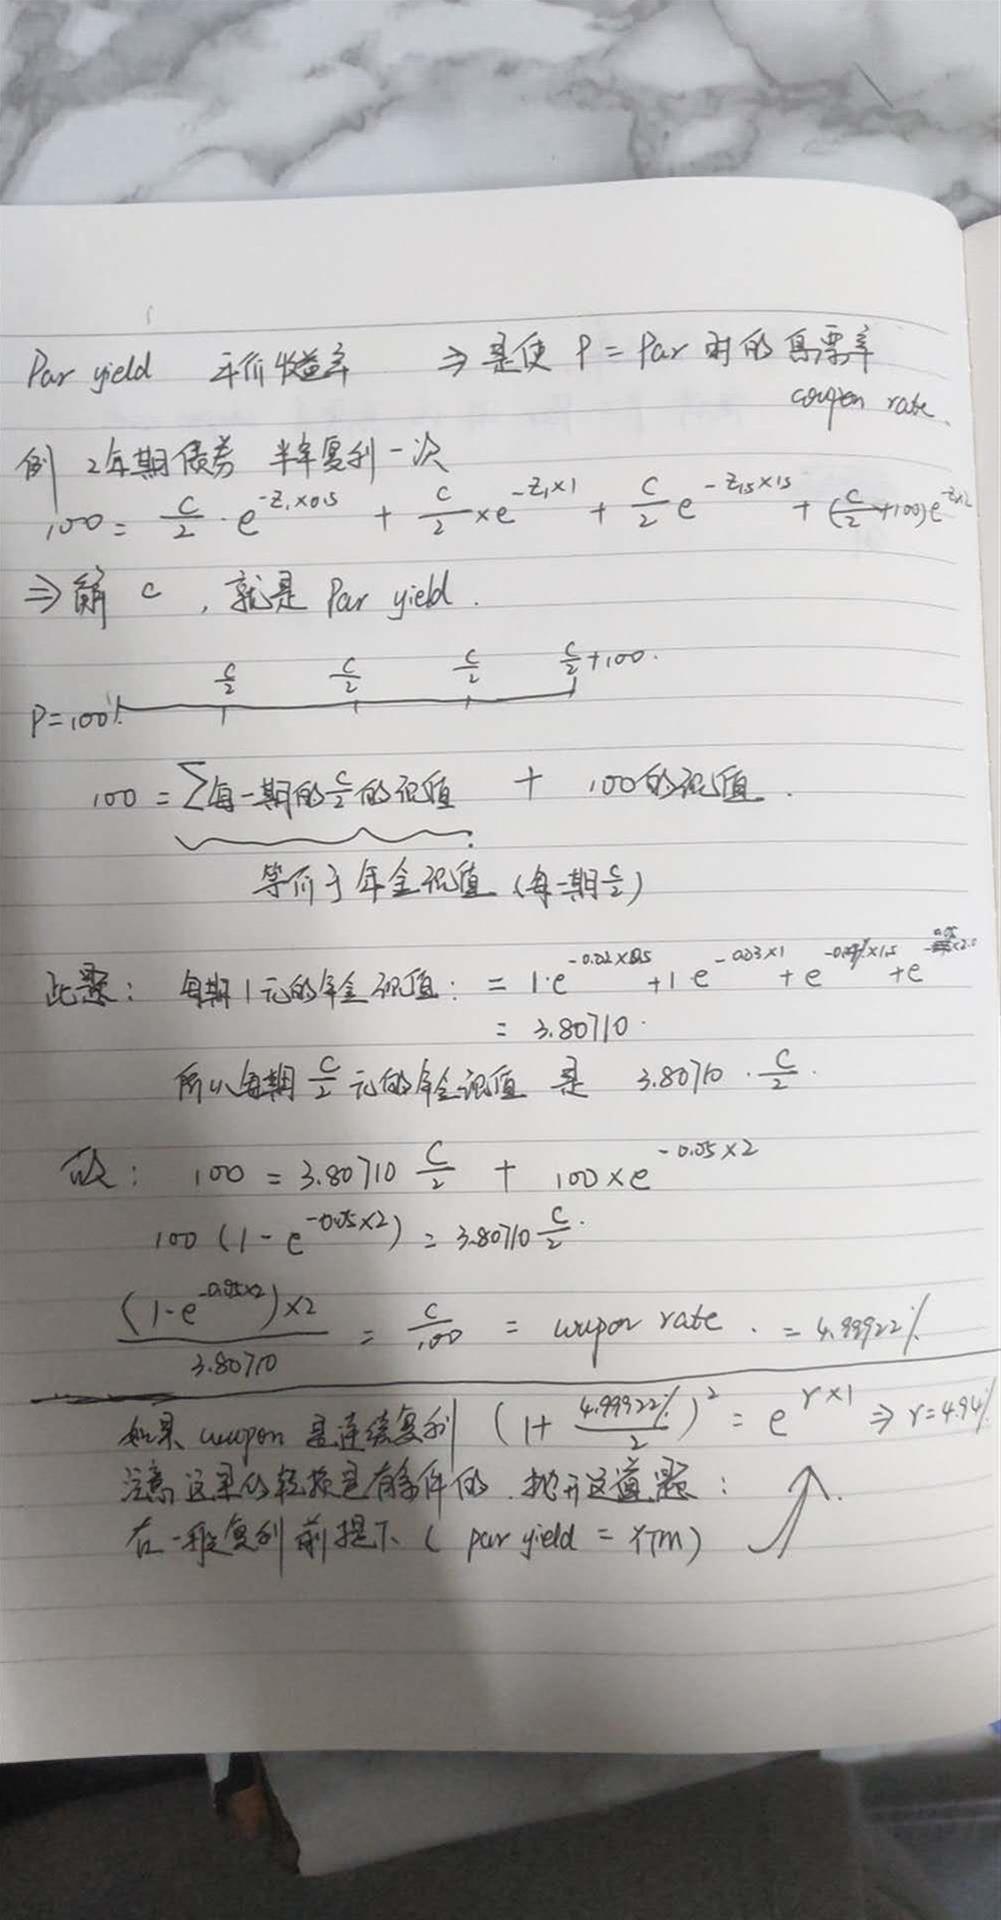 Par yield 平价收益率 ⇒ 是使 P = Par 时的 息票率
coupon rate.
例 2年期债券 半年复利一次
100 = C/2 · e^(-Z₁×0.5) + C/2 × e^(-Z₁×1) + C/2 e^(-Z₁.₅×1.5) + (C/2+100)e^(-Z₂×2)
⇒ 解 C , 就是 Par yield.
C/2 C/2 C/2 C/2+100.
P=100
100 = Σ每一期的C/2的现值 + 100的现值.
等价于年金现值 (每一期C/2)
此题: 每期1元的年金现值: = 1·e^(-0.02×0.5) + 1 e^(-0.03×1) + e^(-0.04×1.5) + e^(-0.05×2.0)
= 3.80710.
所以每期 C/2 元的年金现值 是 3.80710 · C/2.
故: 100 = 3.80710 C/2 + 100×e^(-0.05×2)
100 (1-e^(-0.05×2)) = 3.80710 C/2.
(1-e^(-0.05×2))×2 / 3.80710 = C/100 = coupon rate. = 4.99922%
如果 coupon 是连续复利 (1+ 4.99922%/2)² = e^(r×1) ⇒ r=4.94%
注意这里的转换是有条件的. 抛开这道题:
在一般复利前提下 ( par yield = YTM)